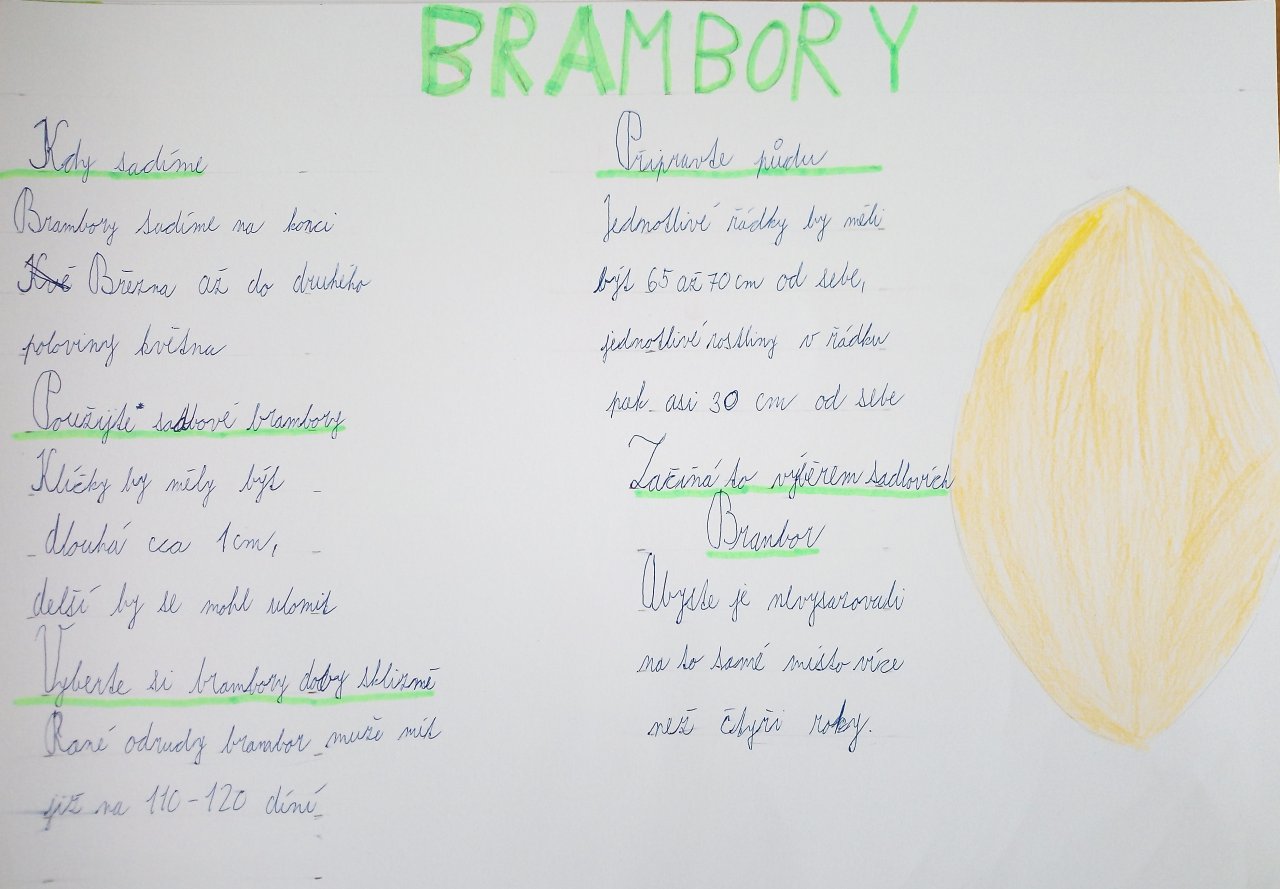 BRAMBORY
Kdy sadíme
Brambory sadíme na konci
Kvě Března až do druhého
poloviny května
Použijte sadbové brambory
Klíčky by měly být
dlouhá cca 1 cm,
delší by se mohl ulomit
Vyberte si brambory doby sklizně
Rané odrudy brambor muže mít
již na 110-120 díní
Připravte půdu
Jednotlivé řádky by měli
být 65 až 70 cm od sebe,
jednotlivé rostliny v řádku
pak asi 30 cm od sebe
Začíná to výběrem sadlovích
Branbor
Abyste je nevysazovali
na to samé místo více
než čtyři roky.